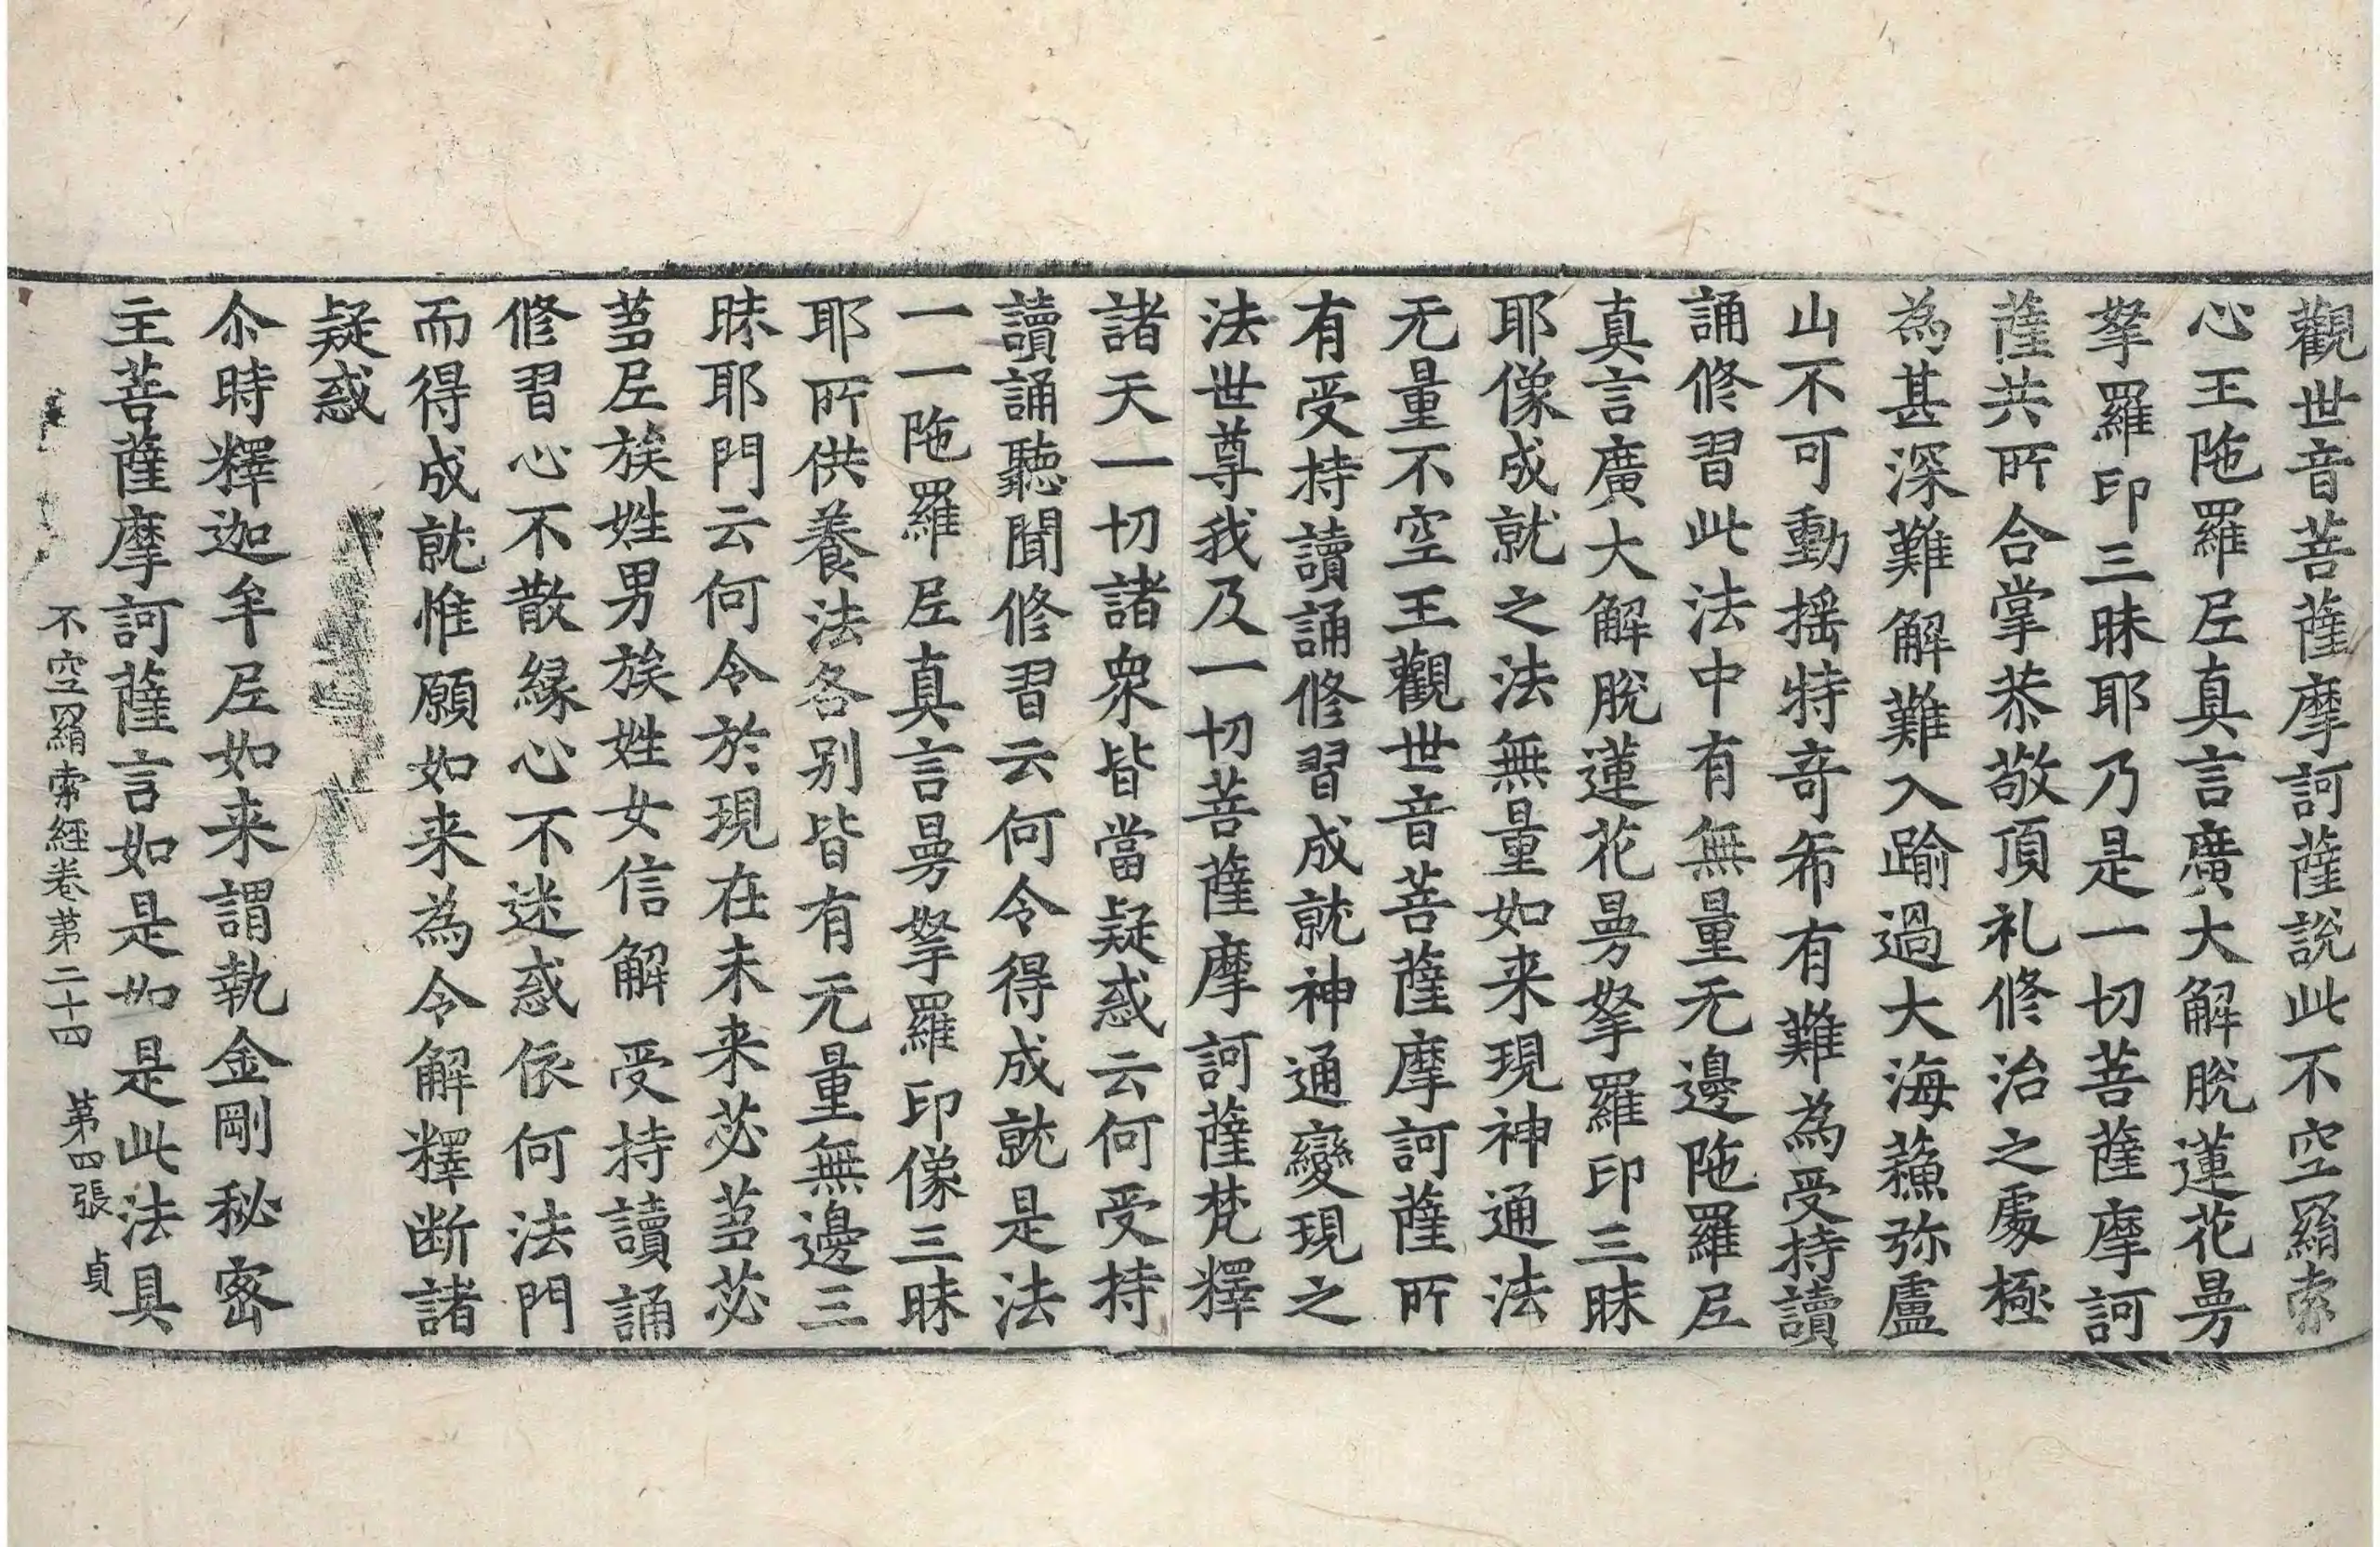 觀世音菩薩摩訶薩說此不空羂索
心王陁羅尼真言廣大解脫蓮花曼
拏羅印三昧耶乃是一切菩薩摩訶
薩共所合掌恭敬頂礼修治之處極
為甚深難解難入踰過大海蘓弥盧
山不可動搖特竒希有難為受持讀
誦修習此法中有無量无邊陁羅尼
真言廣大解脫蓮花曼拏羅印三昧
耶像成就之法無量如来現神通法
无量不空王觀世音菩薩摩訶薩所
有受持讀誦修習成就神通變現之
法世尊我及一切菩薩摩訶薩梵釋
諸天一切諸衆皆當疑惑云何受持
讀誦聽聞修習云何令得成就是法
一一陁羅尼真言曼拏羅印像三昧
耶所供養法各别皆有无量無邊三
昧耶門云何令於現在未来苾蒭苾
蒭尼族姓男族姓女信解受持讀誦
修習心不散緣心不迷惑依何法門
而得成就惟願如来為令解釋断諸
疑惑
尒時釋迦牟尼如来謂執金剛秘密
主菩薩摩訶薩言如是如是此法具
不空羂索經卷第二十四 第四張 貞